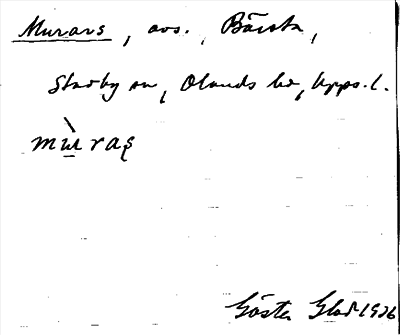 Murars, avs., Bärsta,
Stavby sn, Olands hd, Upps. l.
mù̱raʂ
Gösta 1926